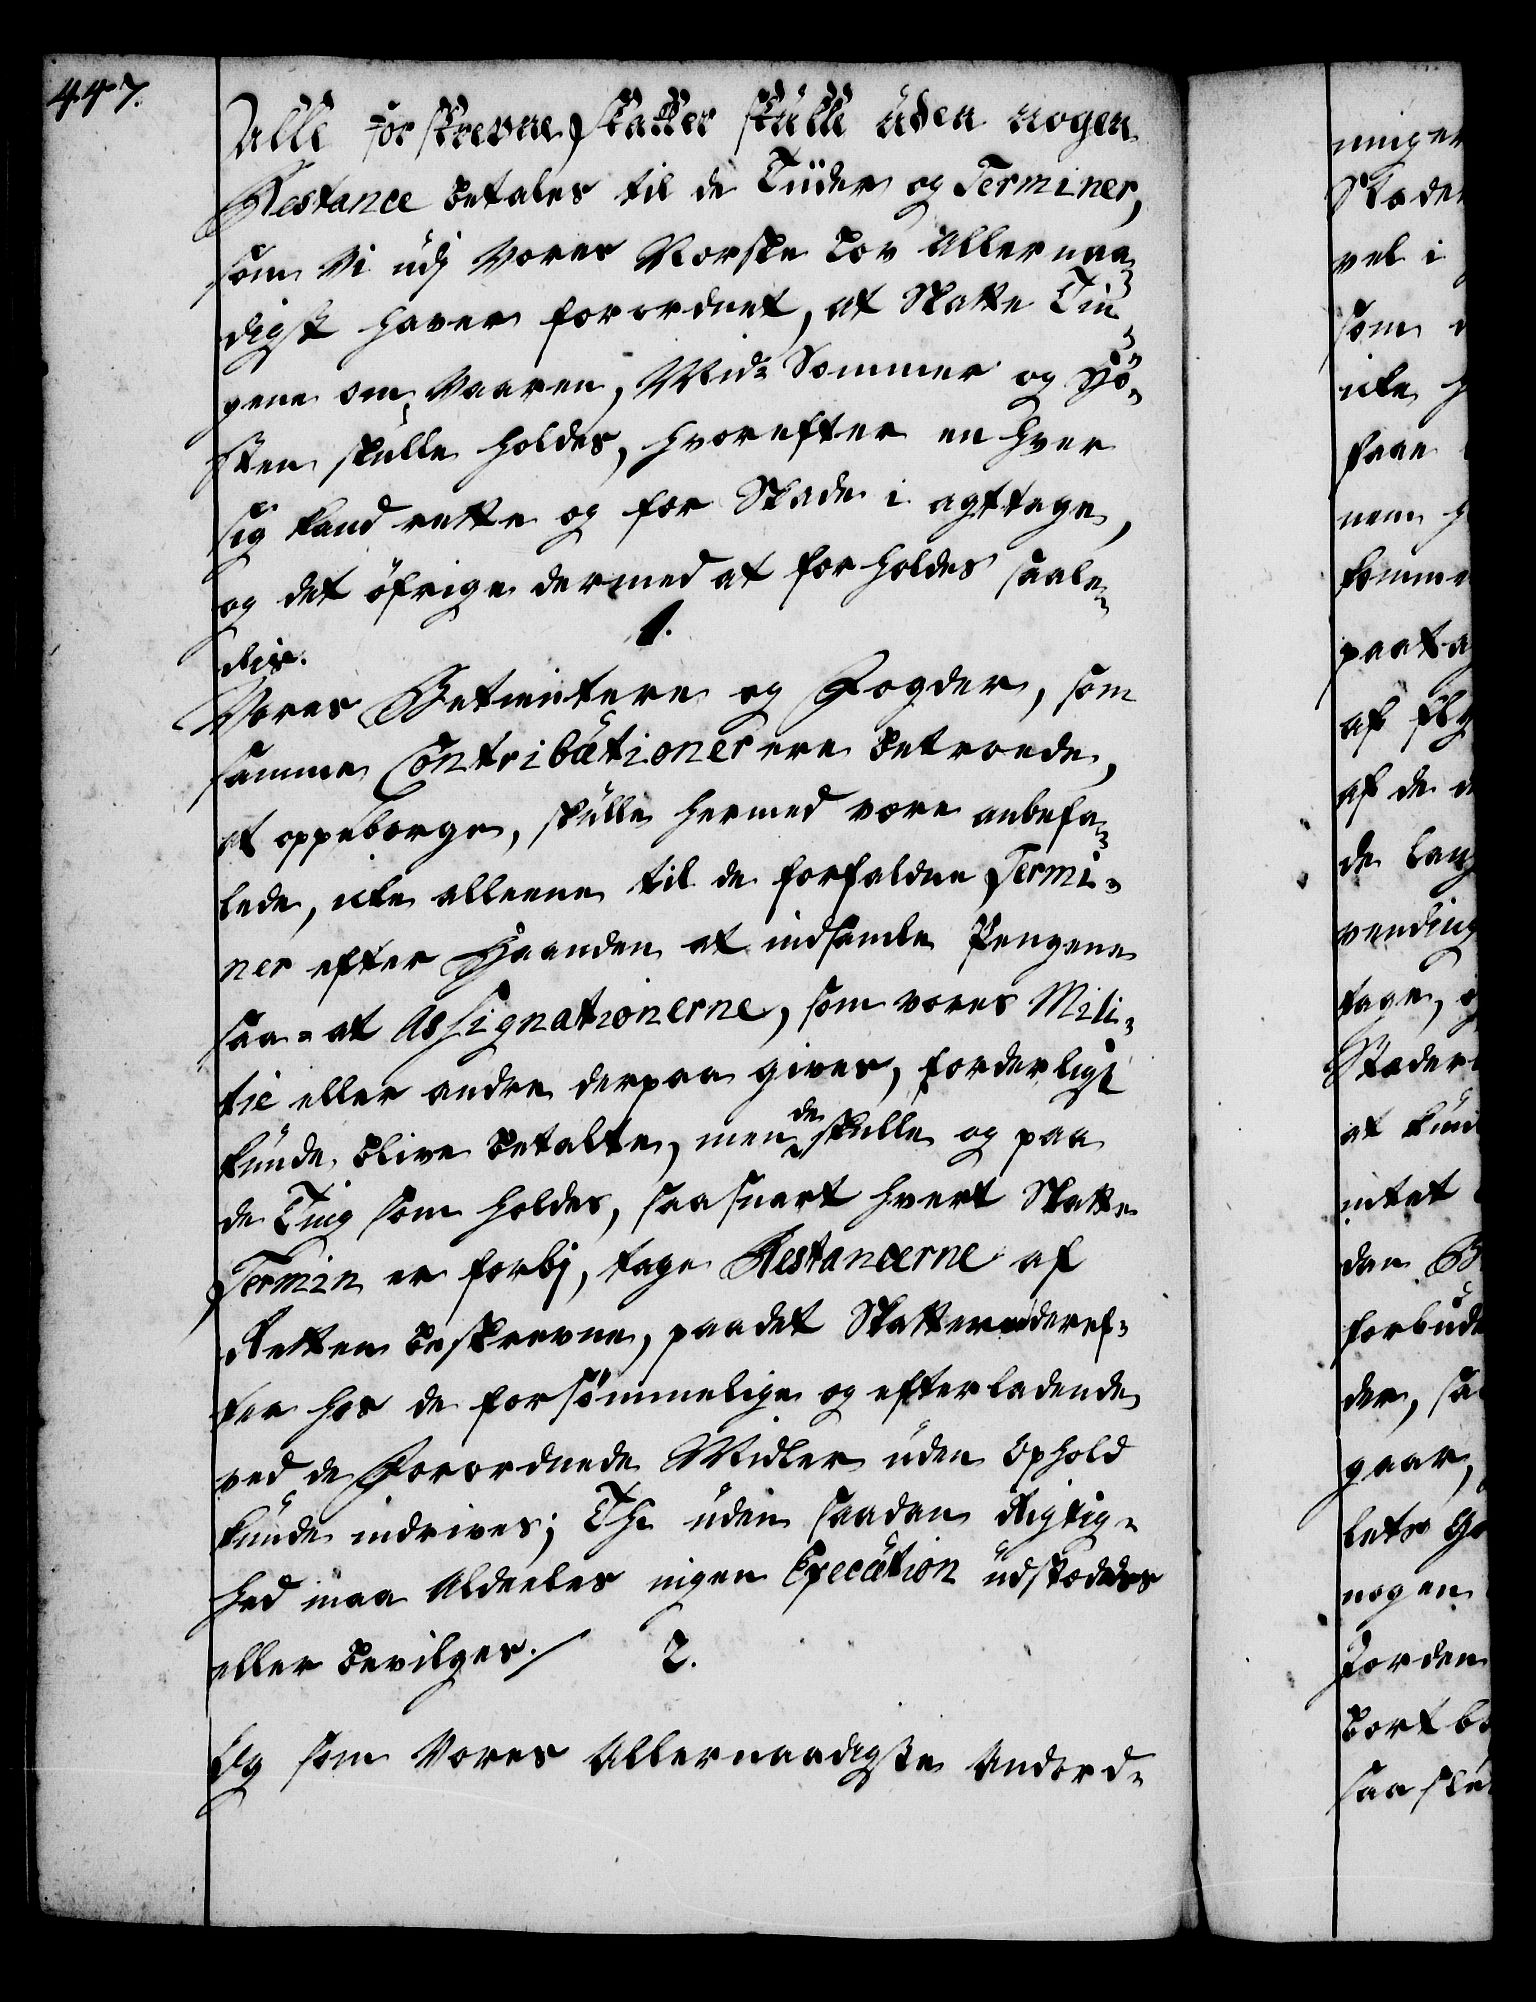 447.
Alle forskrevne Skatter skulle uden nogen
Restance betales til de Tiider og Terminer,
som Vi udj Vores Norske Lov Allernaa-
digst haver forordnet, at Skatte Tin-
gene om Vaaren, Mid-Sommer og Hö-
sten skulle holdes, hvorefter en hver
sig kand rette og for Skade i agttage,
og det öfrige dermed at forholdes saale-
dis.
1.
Vores Betientere og Fogder, som
samme Contributioner ere betroede,
at oppeborge, skulle hermed være anbefa-
lede, icke alleene til de forfaldne Termi-
ner efter Haanden at indsamle Pengene
saa-at Assignationerne, som vores Mili-
tie eller andre derpaa gives, forderligst
kunde blive betalte, men de skulle og paa
de Ting som holdes, saa snart hvert Skatte
Termin er forbj, tage Restancerne af
Retten beskrevne, paadet Skatterne deref-
ter hos de forsömmelige og efterladende
ved de Forordnede Midler uden Ophold
kunde indrives; Thi uden saadan Rigtig-
hed maa Aldeeles ingen Execution udstædes
eller bevilges./ 2.
Og som Vores Allernaadigste Anord-
ninger
Stæder
vel i
som
icke
faae
nem
komme
paata
af fly
af de
de lang
vending
tage, og
Stæder
at kun
intet
den
forbude
der, saa
gaar,
lets
nogen
Jorden
bort
saa